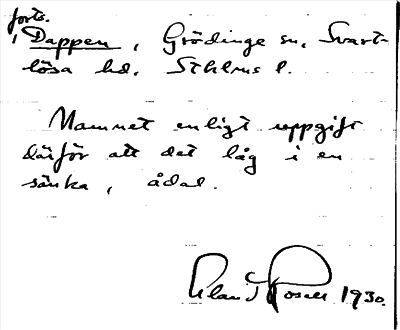 forts.
1 Dappen, Grödinge sn, Svart-
lösa hd. Sthlms l.
Namnet enligt uppgift
därför att det låg i en
sänka, ådal.
1930.